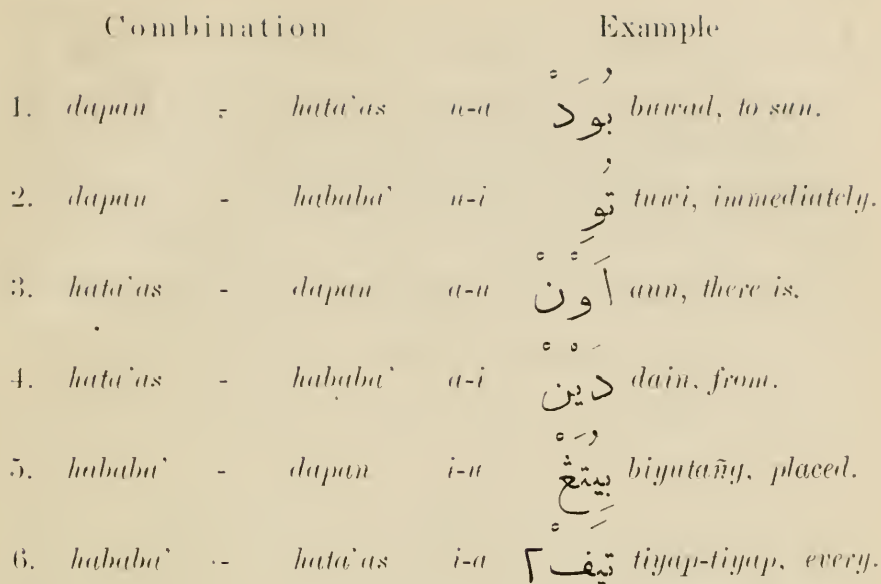 Combination Example
1. dapan - hata'as u-a بُوَدْ buwad, to sun.
2. dapan - hababa' u-i تُوِ tuwi, immediately.
3. hata'as - dapan a-u اَوْنْ aun, there is.
4. hata'as - hababa' a-i دَيْنْ dain, from.
5. hababa' - dapan i-u بِيُتَڠْ biyutañg, placed.
6. hababa' - hata'as i-a تِيَفْ٢ tiyap-tiyap, every.